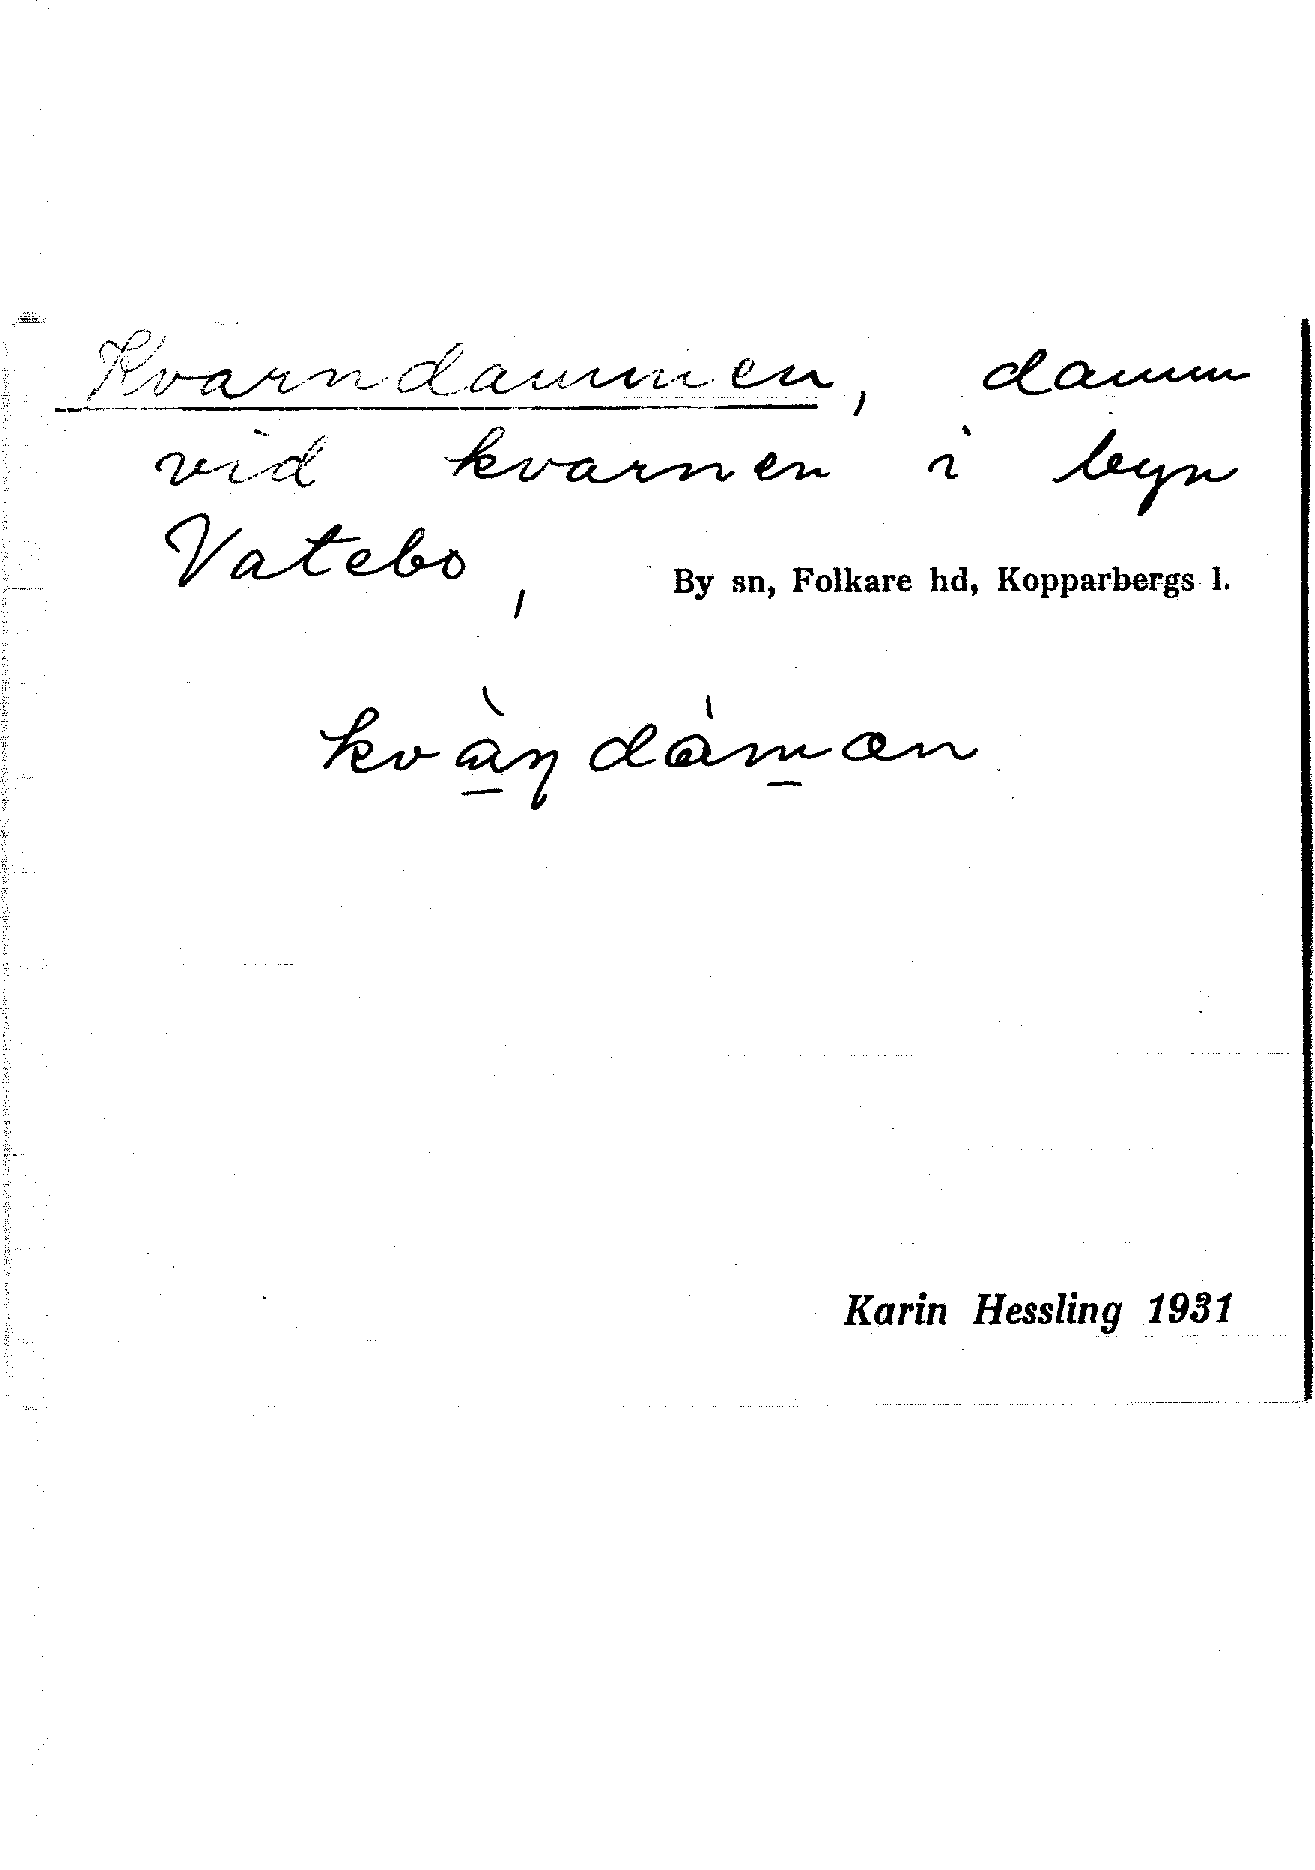 Kvarndammen, damm
vid kvarnen i byn
Vatebo, By sn, Folkare hd, Kopparbergs l.
kvàṇdámæn
Karin Hessling 1931